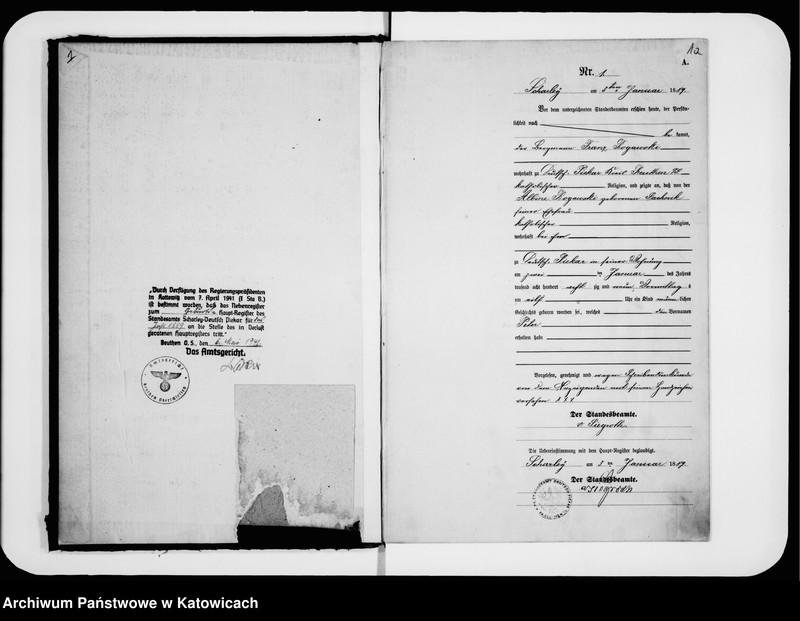 1
„Durch Verfügung des Regierungspräsidenten
in Kattowitz vom 7. April 1941 (I Sta B.)
ist bestimmt worden, daß das Nebenregister
zum Geburts- Haupt-Register des
Standesamts Scharley-Deutsch Piekar für das
Jahr 1889 an die Stelle des in Verlust
geratenen Hauptregisters tritt."
Beuthen O. S., den 6. Mai 1941.
Das Amtsgericht.
Amtsgericht
Beuthen Oberschlesien
1a
A.
Nr. 1
Scharley am 5ten Januar 1889.
Vor dem unterzeichneten Standesbeamten erschien heute, der Persön-
lichkeit nach
be kannt,
der Bergmann Franz Rogowski
wohnhaft zu Deutsch Piekar Kreis Beuthen O/S
katholischer Religion, und zeigte an, daß von der
Albine Rogowski geborenen
seiner Ehefrau
katholischer Religion,
wohnhaft bei ihm
zu Deutsch Piekar in seiner Wohnung
am zwei ten Januar des Jahres
tausend acht hundert acht zig und neun Vormittag s
um elf Uhr ein Kind männlichen
Geschlechts geboren worden sei, welches den Vornamen
Peter
erhalten habe
Vorgelesen, genehmigt und wegen Schreibensunkunde
von dem Anzeigenden mit seinem Handzeichen
versehen
Der Standesbeamte.
Die Uebereinstimmung mit dem Haupt-Register beglaubigt.
Scharley am 5ten Januar 1889.
Der Standesbeamte.
Archiwum Państwowe w Katowicach